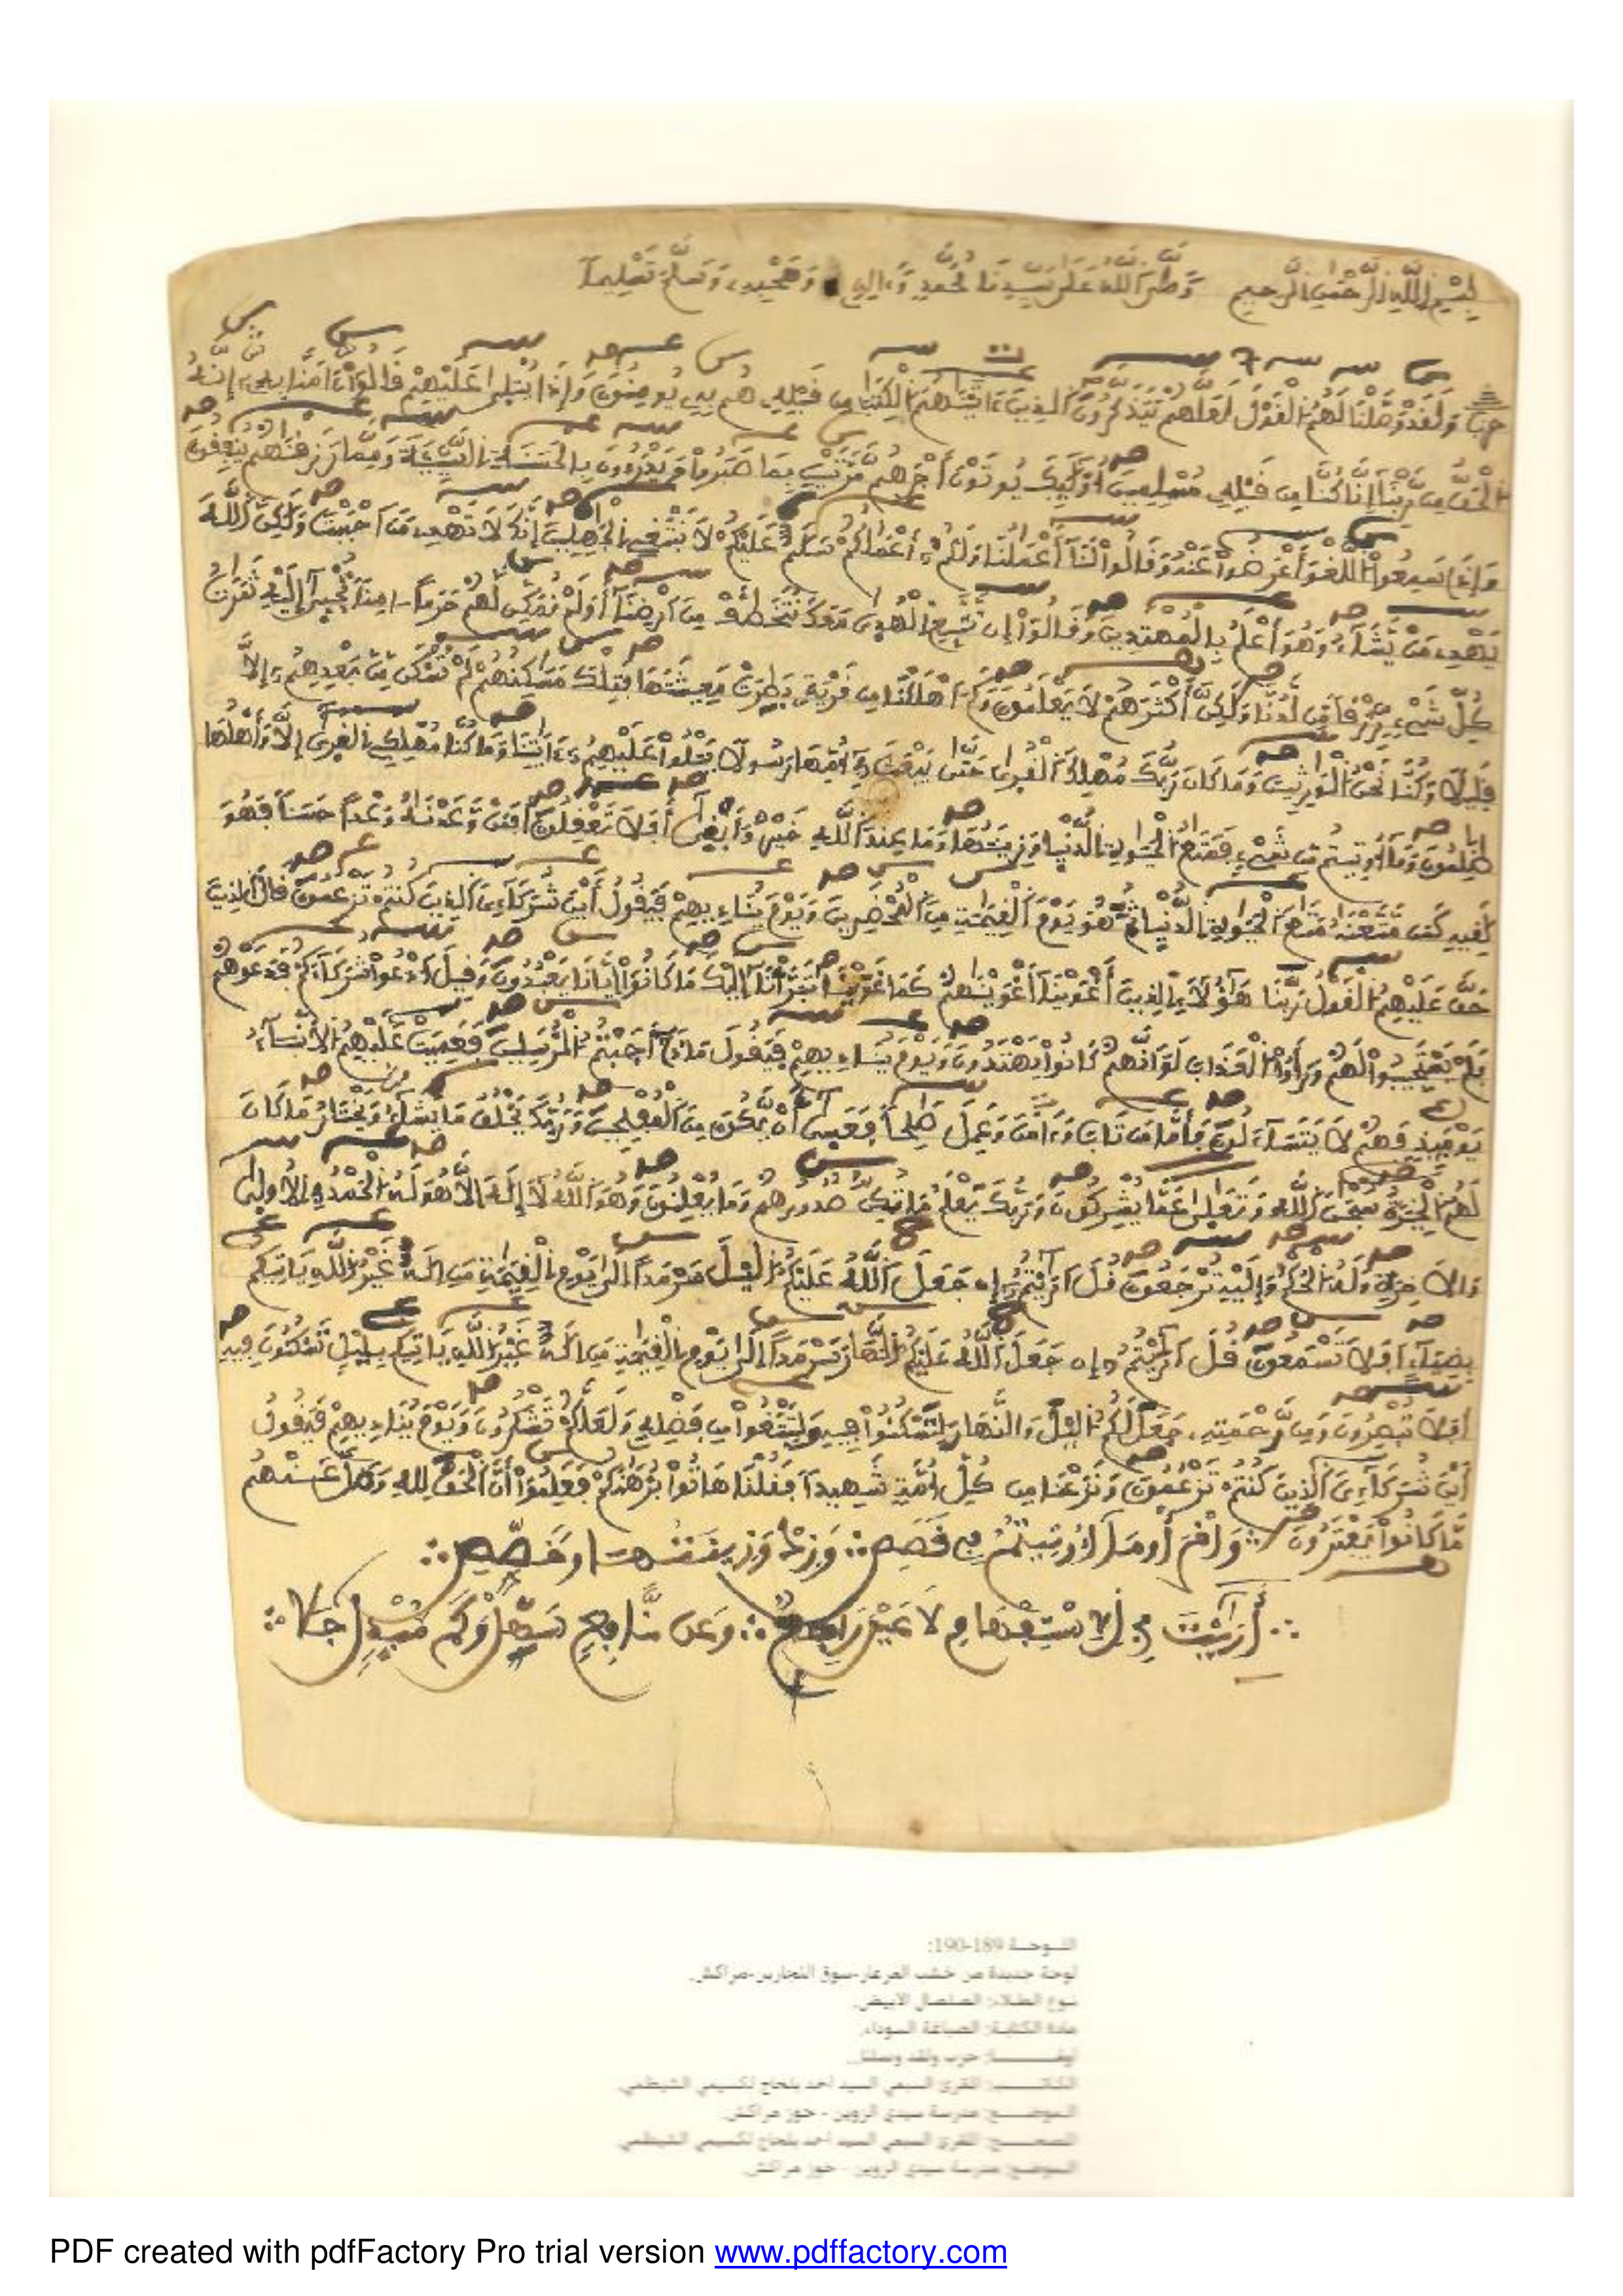 بِسْمِ اللَّهِ الرَّحْمَٰنِ الرَّحِيمِ وَصَلَّى اللَّهُ عَلَى سَيِّدِنَا مُحَمَّدٍ وَءَالِهِ وَصَحْبِهِ وَسَلَّمَ تَسْلِيماً
حزب وَلَقَدْ وَصَّلْنَا لَهُمُ الْقَوْلَ لَعَلَّهُمْ يَتَذَكَّرُونَ الذِينَ ءَاتَيْنَٰهُمُ الْكِتَٰبَ مِن قَبْلِهِ هُم بِهِ يُومِنُونَ وَإِذَا يُتْلَىٰ عَلَيْهِمْ قَالُواْ ءَامَنَّا بِهِ إِنَّهُ
الْحَقُّ مِن رَّبِّنَا إِنَّا كُنَّا مِن قَبْلِهِ مُسْلِمِينَ أُوْلَٰئِكَ يُوتَوْنَ أَجْرَهُم مَّرَّتَيْنِ بِمَا صَبَرُواْ وَيَدْرَءُونَ بِالْحَسَنَةِ السَّيِّئَةَ وَمِمَّا رَزَقْنَٰهُمْ يُنفِقُونَ
وَإِذَا سَمِعُواْ اللَّغْوَ أَعْرَضُواْ عَنْهُ وَقَالُواْ لَنَا أَعْمَٰلُنَا وَلَكُمُ أَعْمَٰلُكُمْ سَلَٰمٌ عَلَيْكُمْ لَا نَبْتَغِي الْجَٰهِلِينَ إِنَّكَ لَا تَهْدِي مَنَ احْبَبْتَ وَلَٰكِنَّ اللَّهَ
يَهْدِي مَنْ يَّشَاءُ وَهُوَ أَعْلَمُ بِالْمُهْتَدِينَ وَقَالُواْ إِن نَّتَّبِعِ الْهُدَىٰ مَعَكَ نُتَخَطَّفْ مِنَ ارْضِنَا أَوَلَمْ نُمَكِّن لَّهُمْ حَرَماً ـامِناً تُجْبَىٰ إِلَيْهِ ثَمَرَٰتُ
كُلِّ شَيْءٍ رِّزْقاً مِّن لَّدُنَّا وَلَٰكِنَّ أَكْثَرَهُمْ لَا يَعْلَمُونَ وَكَمَ اهْلَكْنَا مِن قَرْيَةٍ بَطِرَتْ مَعِيشَتَهَا فَتِلْكَ مَسَٰكِنُهُمْ لَمْ تُسْكَن مِّنۢ بَعْدِهِمُ إِلَّا
قَلِيلًا وَكُنَّا نَحْنُ الْوَٰرِثِينَ وَمَا كَانَ رَبُّكَ مُهْلِكَ الْقُرَىٰ حَتَّىٰ يَبْعَثَ فِي أُمِّهَا رَسُولًا يَتْلُواْ عَلَيْهِمُ ءَايَٰتِنَا وَمَا كُنَّا مُهْلِكِي الْقُرَىٰ إِلَّا وَأَهْلُهَا
ظَٰلِمُونَ وَمَا أُوتِيتُم مِّن شَيْءٍ فَمَتَٰعُ الْحَيَوٰةِ الدُّنْيَا وَزِينَتُهَا وَمَا عِندَ اللَّهِ خَيْرٌ وَأَبْقَىٰ أَفَلَا تَعْقِلُونَ أَفَمَنْ وَّعَدْنَٰهُ وَعْداً حَسَناً فَهُوَ
لَٰقِيهِ كَمَن مَّتَّعْنَٰهُ مَتَٰعَ الْحَيَوٰةِ الدُّنْيَا ثُمَّ هُوَ يَوْمَ الْقِيَٰمَةِ مِنَ الْمُحْضَرِينَ وَيَوْمَ يُنَادِيهِمْ فَيَقُولُ أَيْنَ شُرَكَاءِيَ الذِينَ كُنتُمْ تَزْعُمُونَ قَالَ الذِينَ
حَقَّ عَلَيْهِمُ الْقَوْلُ رَبَّنَا هَٰؤُلَاءِ الذِينَ أَغْوَيْنَا أَغْوَيْنَٰهُمْ كَمَا غَوَيْنَا تَبَرَّأْنَا إِلَيْكَ مَا كَانُواْ إِيَّانَا يَعْبُدُونَ وَقِيلَ ادْعُواْ شُرَكَاءَكُمْ فَدَعَوْهُمْ
فَلَمْ يَسْتَجِيبُواْ لَهُمْ وَرَأَوُاْ الْعَذَابَ لَوَ انَّهُمْ كَانُواْ يَهْتَدُونَ وَيَوْمَ يُنَادِيهِمْ فَيَقُولُ مَاذَا أَجَبْتُمُ الْمُرْسَلِينَ فَعَمِيَتْ عَلَيْهِمُ الَانۢبَاءُ
يَوْمَئِذٍ فَهُمْ لَا يَتَسَاءَلُونَ فَأَمَّا مَن تَابَ وَءَامَنَ وَعَمِلَ صَٰلِحاً فَعَسَىٰ أَنْ يَّكُونَ مِنَ الْمُفْلِحِينَ وَرَبُّكَ يَخْلُقُ مَا يَشَاءُ وَيَخْتَارُ مَا كَانَ
لَهُمُ الْخِيَرَةُ سُبْحَٰنَ اللَّهِ وَتَعَٰلَىٰ عَمَّا يُشْرِكُونَ وَرَبُّكَ يَعْلَمُ مَا تُكِنُّ صُدُورُهُمْ وَمَا يُعْلِنُونَ وَهُوَ اللَّهُ لَا إِلَٰهَ إِلَّا هُوَ لَهُ الْحَمْدُ فِي الُاولَىٰ
وَالَاخِرَةِ وَلَهُ الْحُكْمُ وَإِلَيْهِ تُرْجَعُونَ قُلَ ارَٰيْتُمُ إِن جَعَلَ اللَّهُ عَلَيْكُمُ اليْلَ سَرْمَداً اِلَىٰ يَوْمِ الْقِيَٰمَةِ مَنِ الَٰهٌ غَيْرُ اللَّهِ يَاتِيكُم
بِضِيَاءٍ اَفَلَا تَسْمَعُونَ قُلَ ارَٰيْتُمُ إِن جَعَلَ اللَّهُ عَلَيْكُمُ النَّهَارَ سَرْمَداً اِلَىٰ يَوْمِ الْقِيَٰمَةِ مَنِ الَٰهٌ غَيْرُ اللَّهِ يَاتِيكُم بِلَيْلٍ تَسْكُنُونَ فِيهِ
أَفَلَا تُبْصِرُونَ وَمِن رَّحْمَتِهِ جَعَلَ لَكُمُ اليْلَ وَالنَّهَارَ لِتَسْكُنُواْ فِيهِ وَلِتَبْتَغُواْ مِن فَضْلِهِ وَلَعَلَّكُمْ تَشْكُرُونَ وَيَوْمَ يُنَادِيهِمْ فَيَقُولُ
أَيْنَ شُرَكَاءِيَ الذِينَ كُنتُمْ تَزْعُمُونَ وَنَزَعْنَا مِن كُلِّ أُمَّةٍ شَهِيداً فَقُلْنَا هَاتُواْ بُرْهَٰنَكُمْ فَعَلِمُواْ أَنَّ الْحَقَّ لِلهِ وَضَلَّ عَنْهُم
مَّا كَانُواْ يَفْتَرُونَ
اللوحة 189-190:
لوحة جديدة من خشب العرعار-سوق النجارين-مراكش.
نوع الطلاء: الصلصال الأبيض.
مادة الكتابة: الصباغة السوداء.
حزب ولقد وصلنا.
الكاتب: المقرئ السبعي السيد أحمد بلحاج لكسيمي الشيظمي.
الموضع: مدرسة سيدي الزوين - حوز مراكش.
المصحح: المقرئ السبعي السيد أحمد بلحاج لكسيمي الشيظمي.
الموضع: مدرسة سيدي الزوين - حوز مراكش.
PDF created with pdfFactory Pro trial version www.pdffactory.com